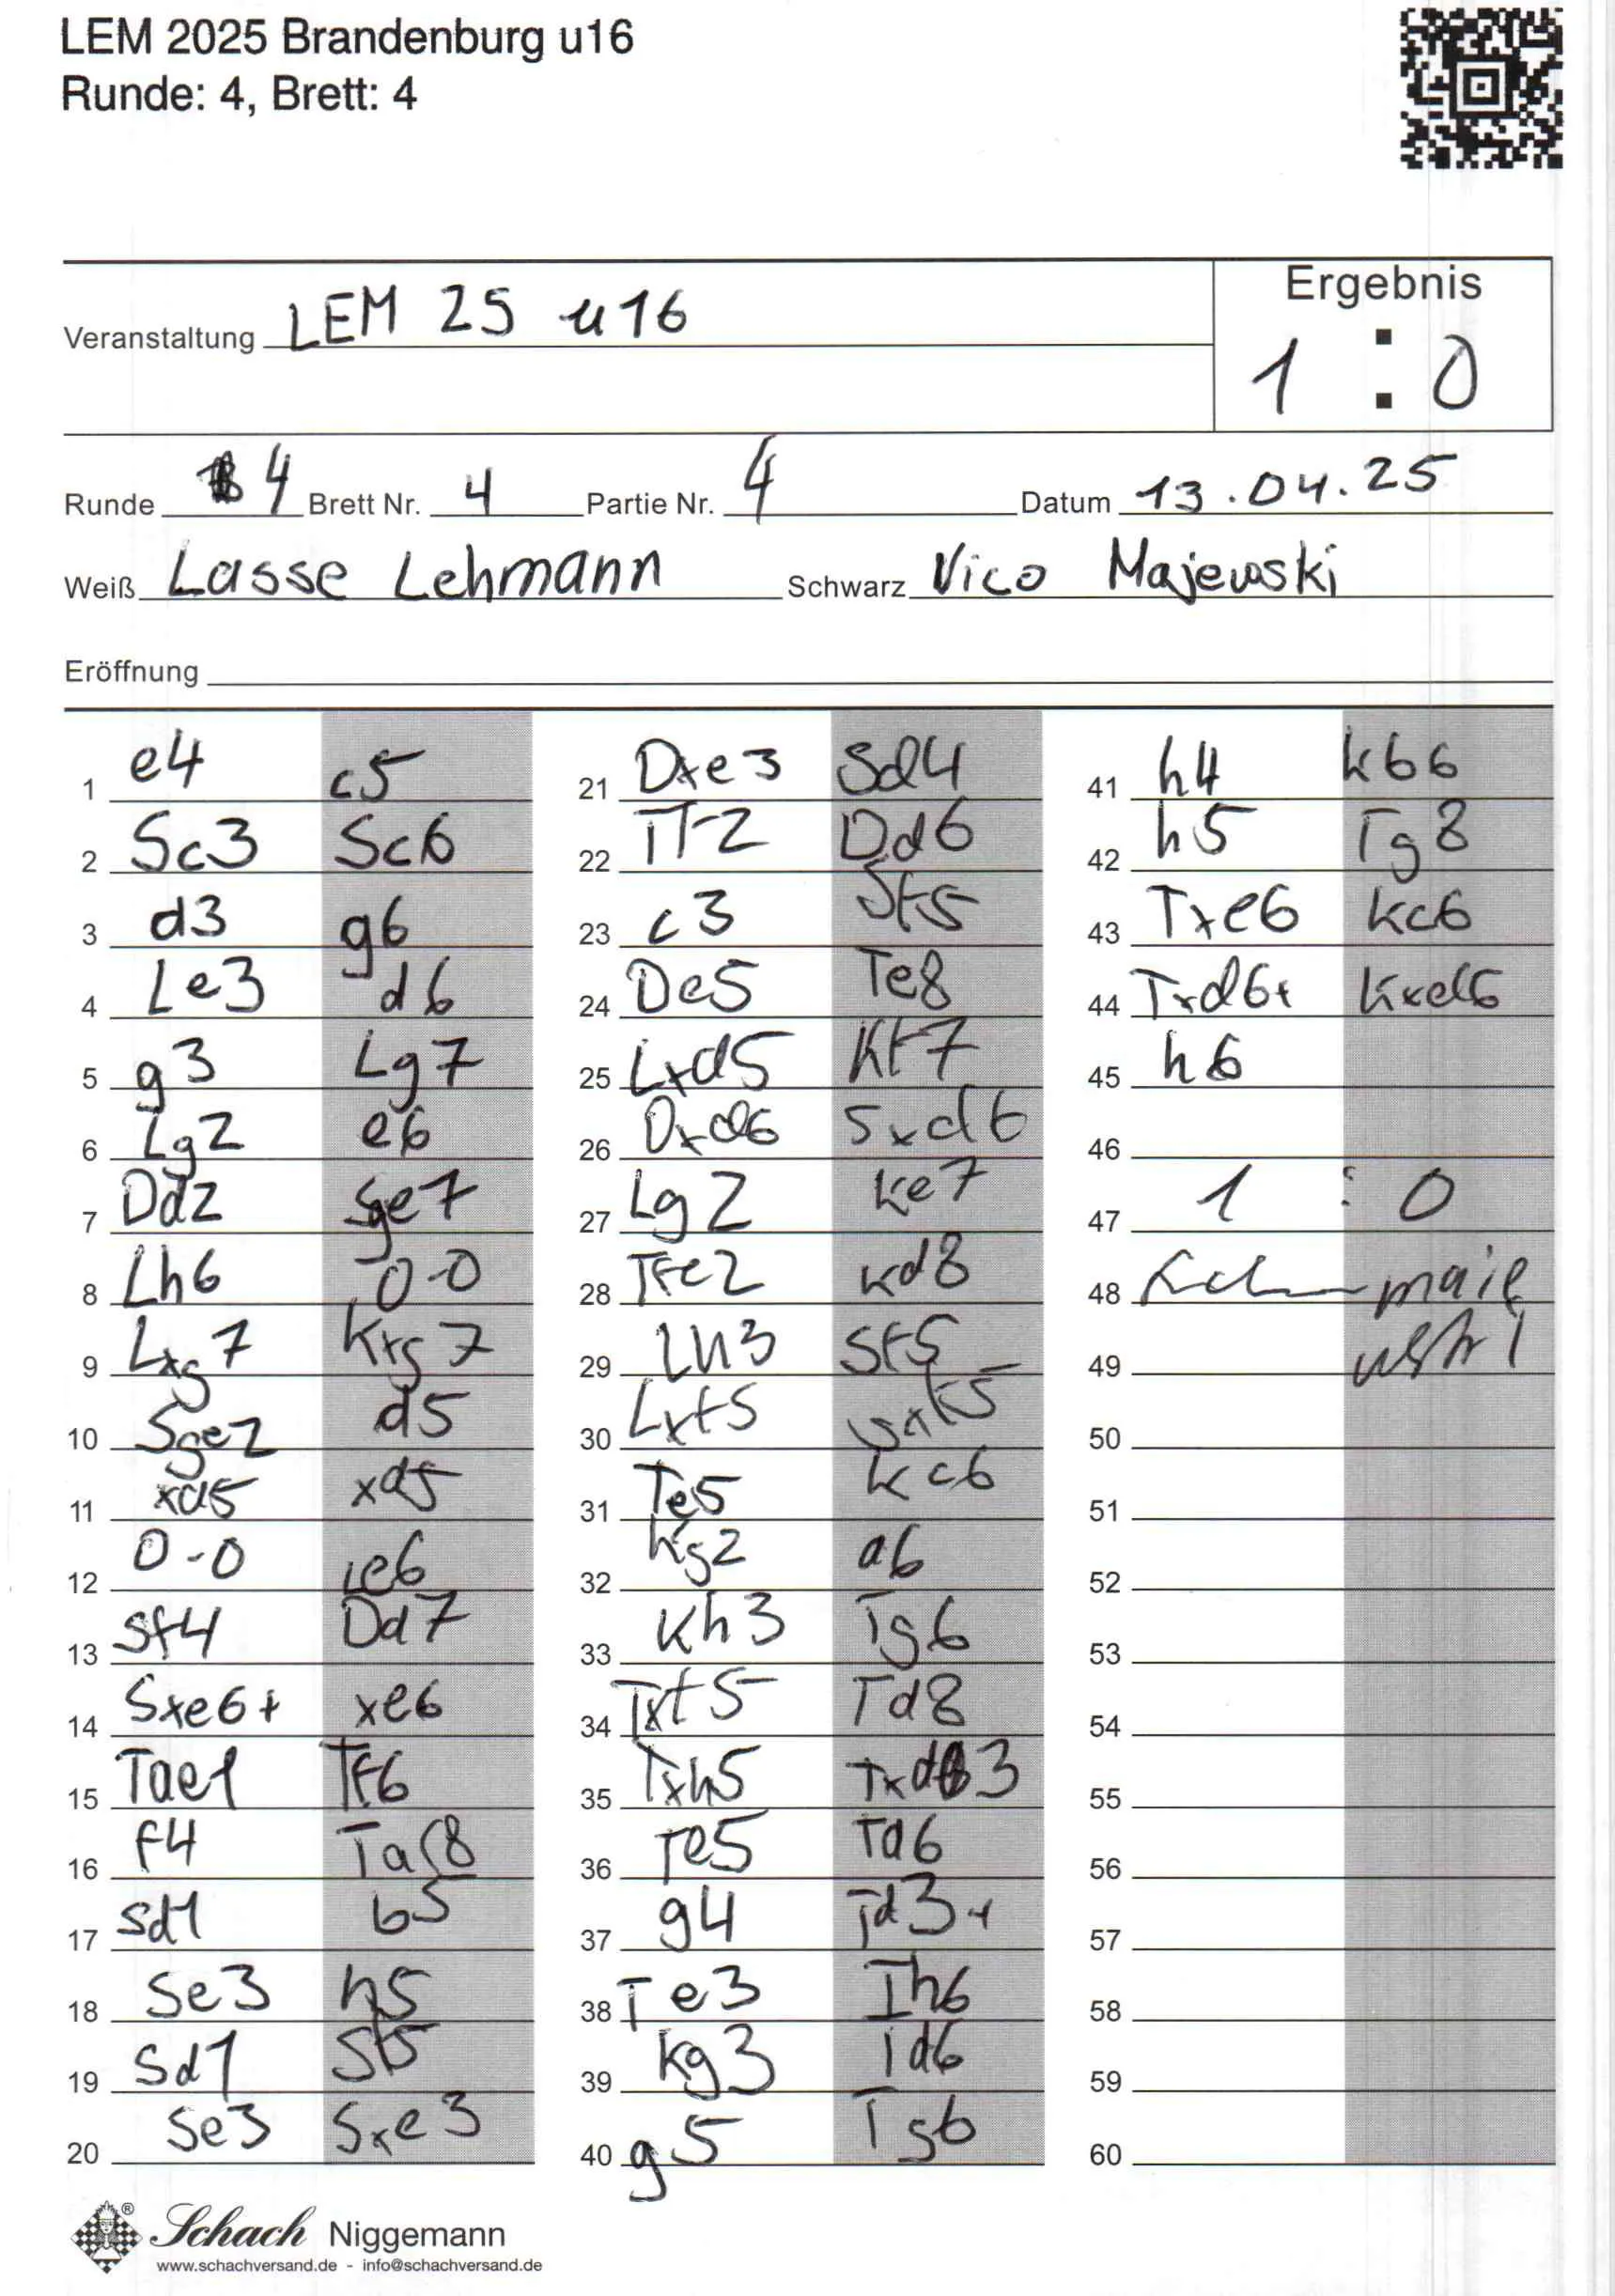 LEM 2025 Brandenburg u16
Runde: 4, Brett: 4
Ergebnis
Veranstaltung LEM 25 u16
1 : 0
Runde 4 Brett Nr. 4 Partie Nr. 4 Datum 13.04.25
Weiß Lasse Lehmann Schwarz Vico Majewski
Eröffnung
1 e4 c5
2 Sc3 Sc6
3 d3 g6
4 Le3 d6
5 g3 Lg7
6 Lg2 e6
7 Dd2 Sge7
8 Lh6 0-0
9 Lxg7 Kxg7
10 Sge2 d5
11 xd5 xd5
12 0-0 Le6
13 Sf4 Dd7
14 Sxe6+ xe6
15 Tae1 Tf6
16 f4 Taf8
17 Sd1 b5
18 Se3 h5
19 Sd1 Sf5
20 Se3 Sxe3
21 Dxe3 Sd4
22 Tf2 Dd6
23 c3 Sf5
24 De5 Te8
25 Lxd5 Kf7
26 Dxd6 Sxd6
27 Lg2 Ke7
28 Tfe2 Kd8
29 Lh3 Sf5
30 Lxf5 gxf5
31 Te5 Kc6
32 Kg2 a6
33 Kh3 Tg6
34 Txf5 Td8
35 Txh5 Txd3
36 Te5 Td6
37 g4 Td3+
38 Te3 Th6
39 Kg3 Td6
40 g5 Tg6
41 h4 Kb6
42 h5 Tg8
43 Txe6 Kc6
44 Txd6+ Kxd6
45 h6
46
47 1 : 0
48
49
50
51
52
53
54
55
56
57
58
59
60
Schach Niggemann
www.schachversand.de - info@schachversand.de